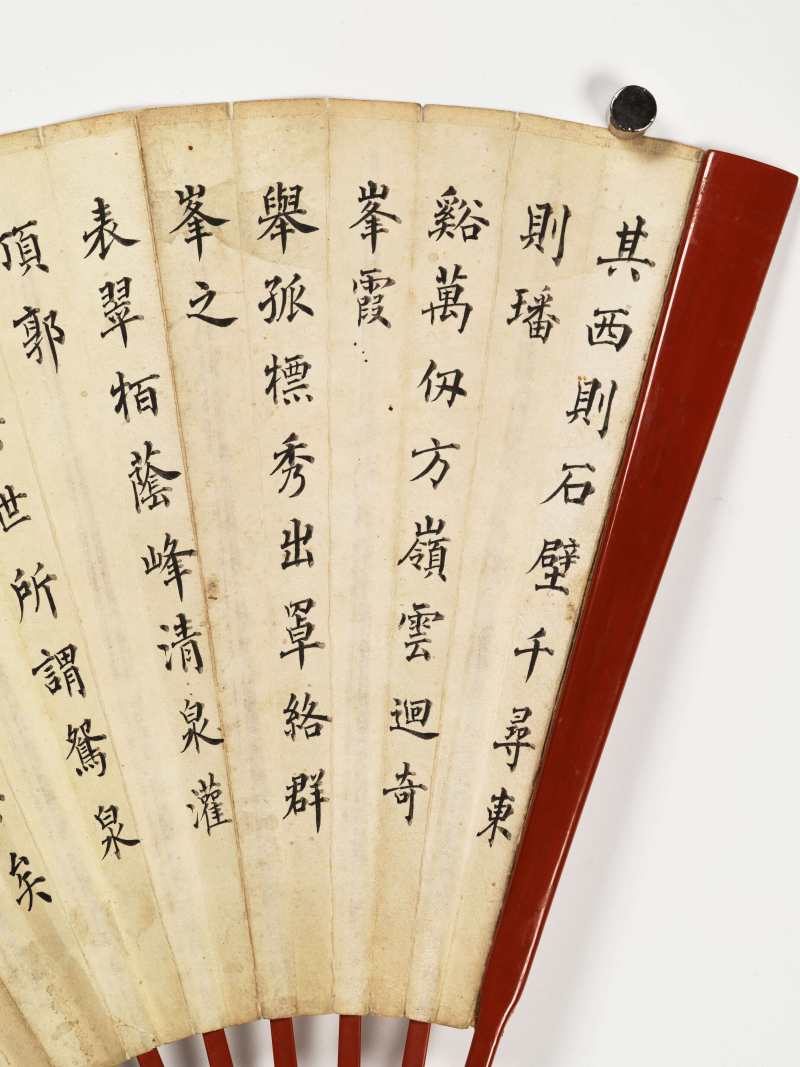 其西則石壁千尋東
則璠
谿萬仞方嶺雲迴奇
峯霞
舉孤標秀出罩絡群
峯之
表翠栢蔭峰清泉灌
頂郭
世所謂鴛泉
矣